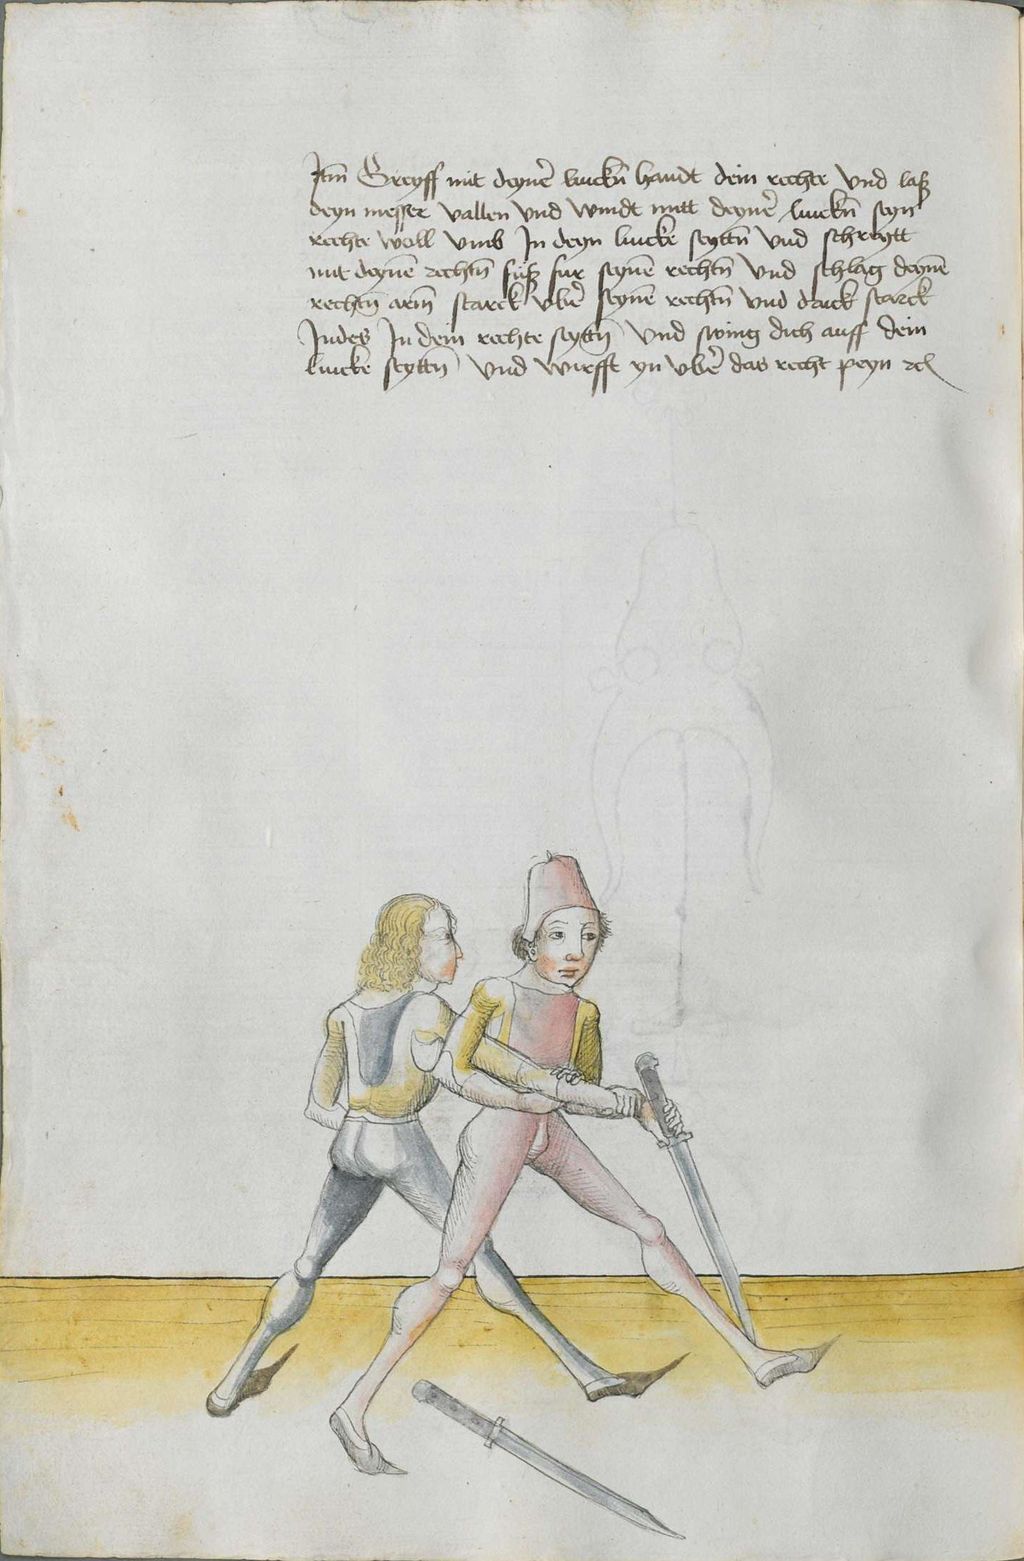 Itm̃ Greyff mit deyner̃ linckñ handt dein rechte vnd laß
deyn messer vallen vnd windt mitt deyner̃ linckñ seyn
rechte woll vmb In deyn lincke seyttñ vnd schreytt
mit deynẽ rechtñ fuß fur seynẽ rechtñ vnd schlag deynẽ
rechtñ arm̃ starck vber̃ seynẽ rechtñ vnd druck starck
Indes In dein rechte seyttñ vnd swing dich auff dein
lincke seyttñ vnd wirfft yn vber̃ das recht peyn